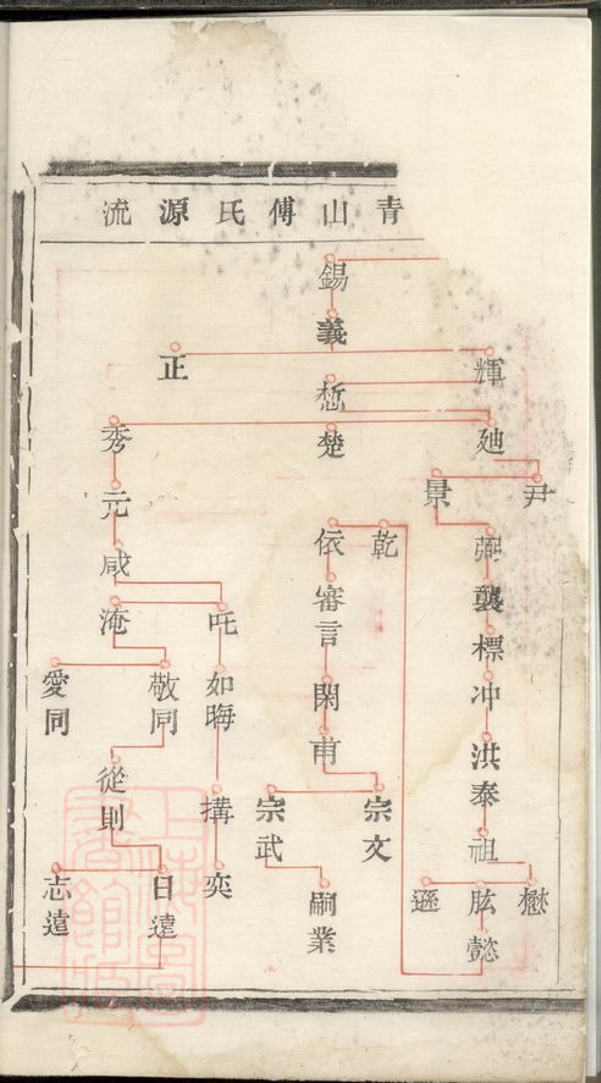 青山傅氏源流
錫
義
輝
正
悊
廸
楚
秀
尹
景
弼
襲
標
冲
洪泰
祖
懋
肱
遜
懿
乾
依
審言
閑
甫
宗文
宗武
嗣業
元
咸
吒
淹
如晦
搆
奕
敬同
愛同
從則
日遠
志遠